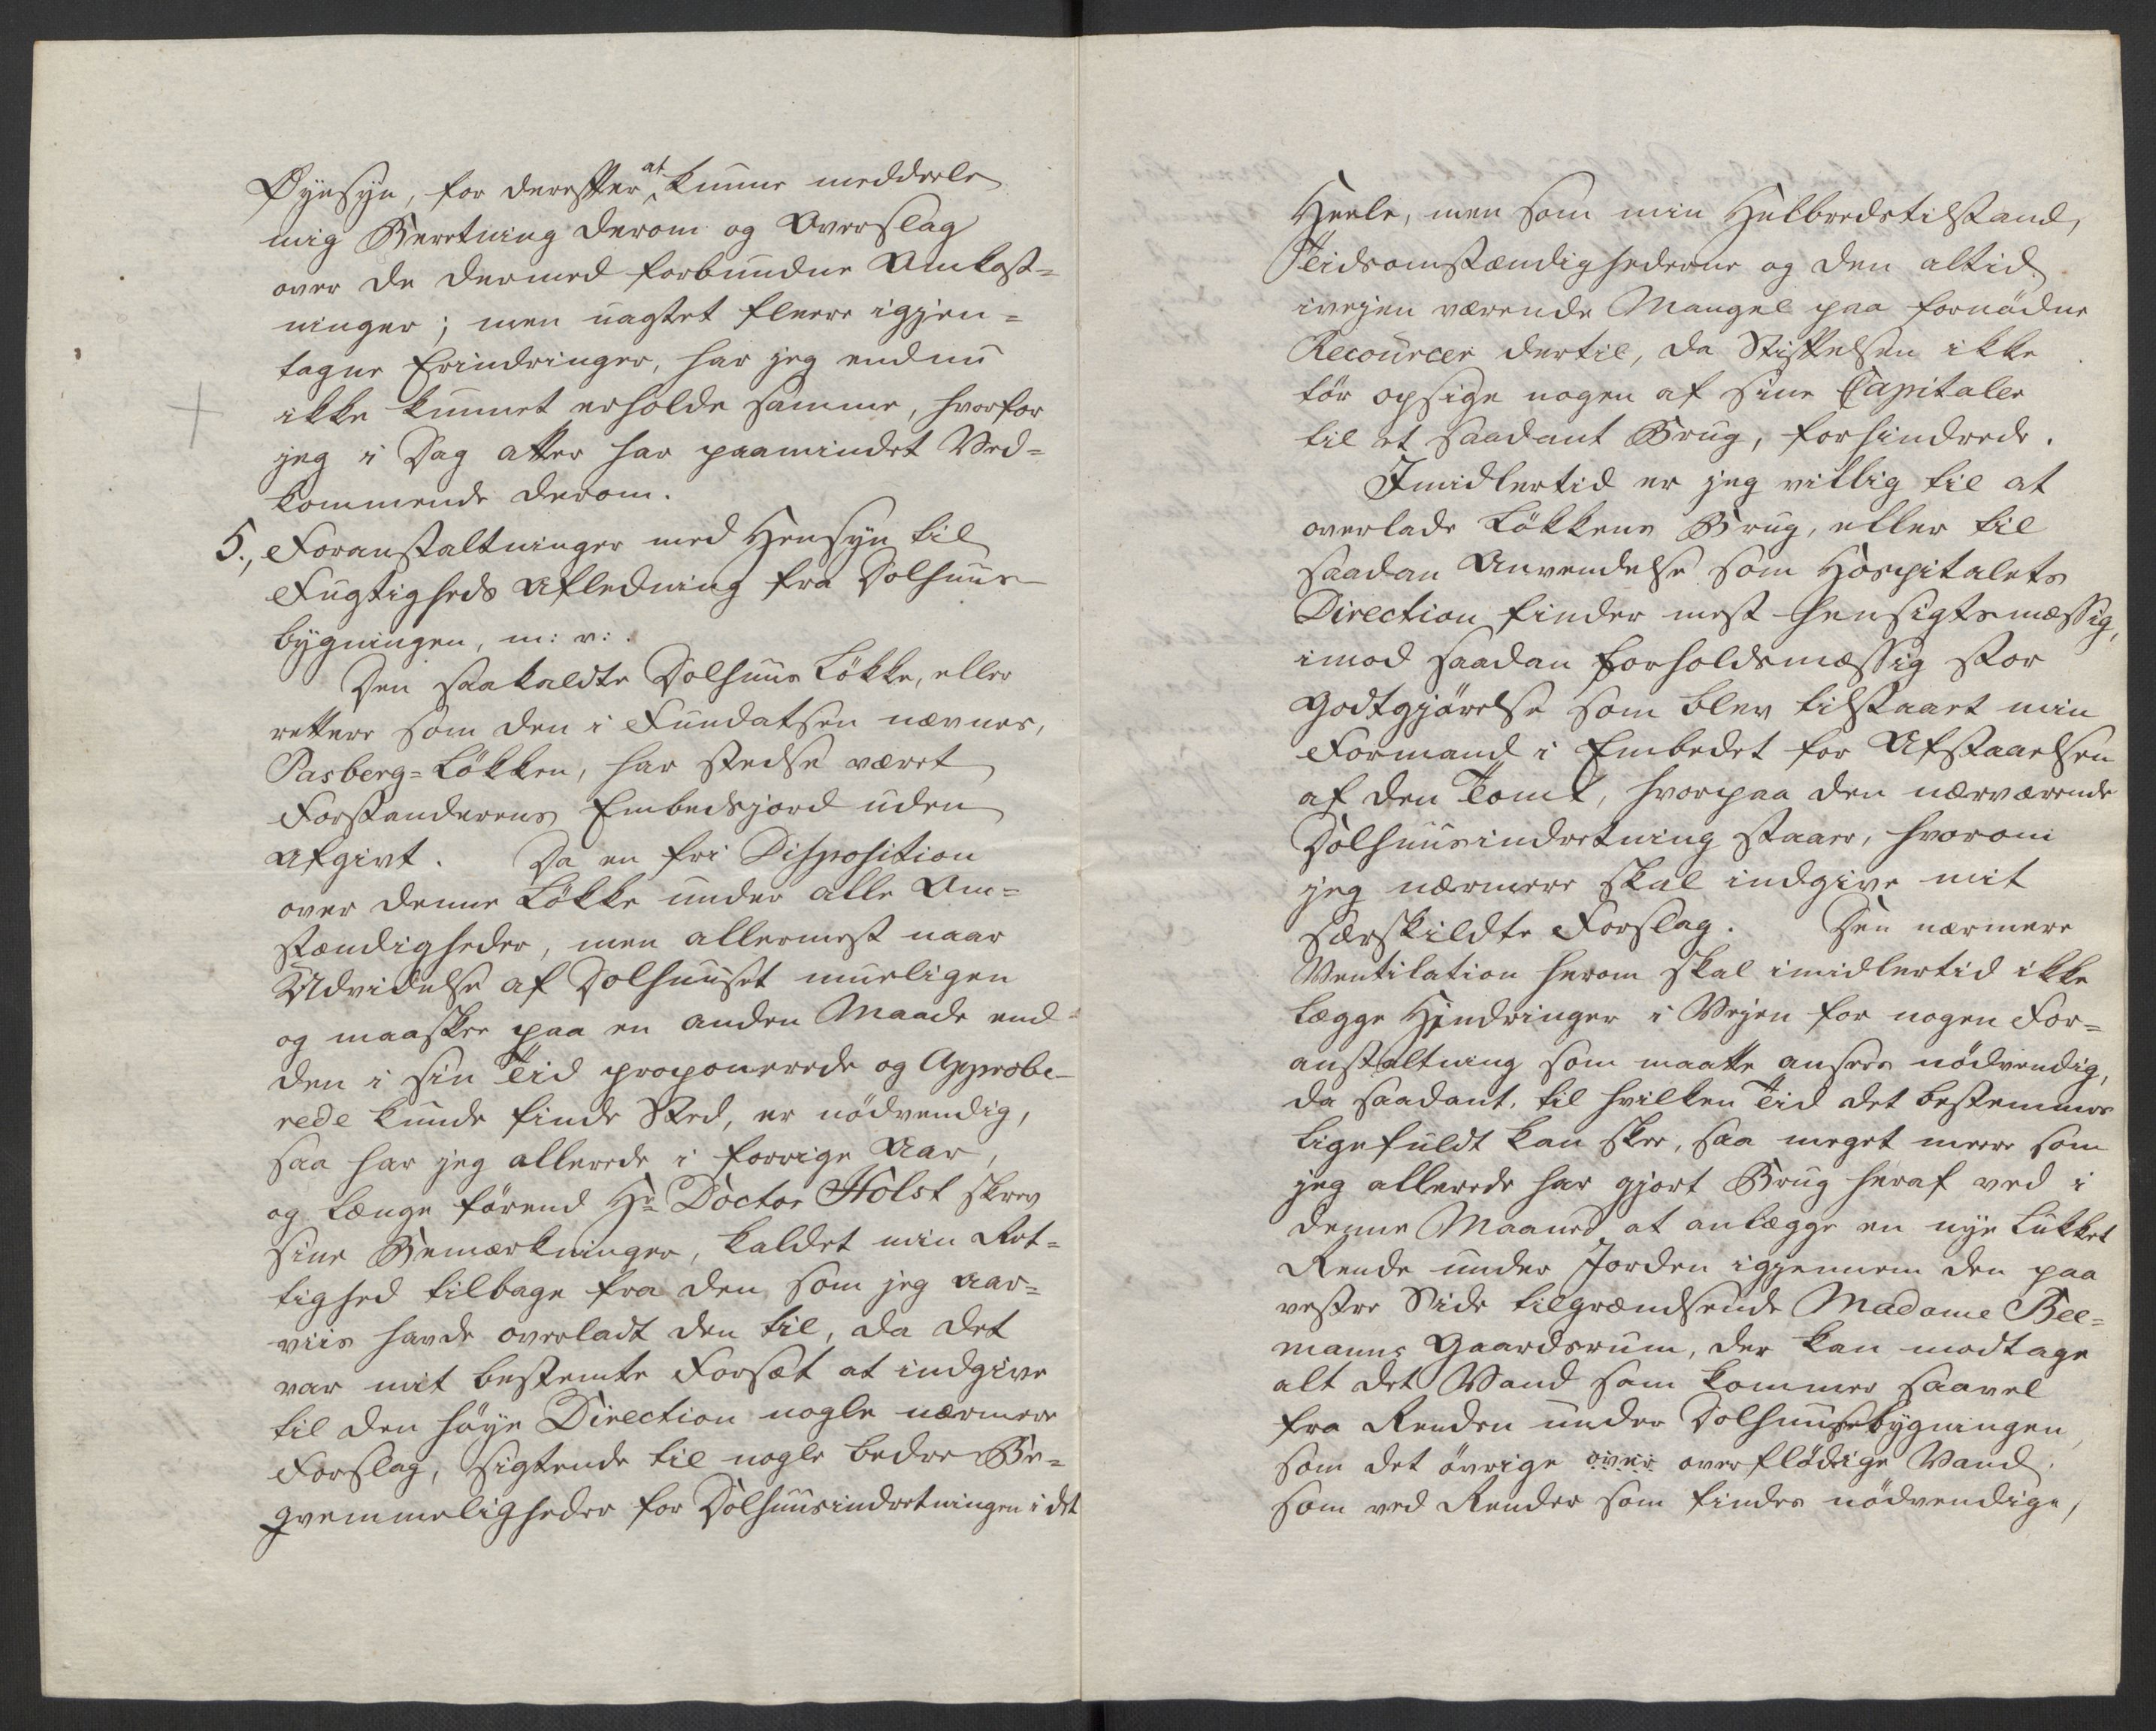 Øyesyn, for derefter at kunne meddeele
mig Beretning derom og Overslag
over de dermed forbundne Omkost=
ninger; men uagtet fleere igjen=
tagne Erindringer, har jeg endnu
ikke kunnet erholde samme, hvorfor
jeg i Dag atter har paamindet Ved=
kommende derom.
5., Foranstaltninger med Hensyn til
Fugtigheds Afledning fra Dolhuus
bygningen, m: v:.
Den saakaldte Dolhuus Løkke, eller
rettere som den i Fundatsen nævnes,
Pasberg=Løkken, har stedse været
Forstanderens Embedsjord uden
Afgivt. Da en fri Disposition
over denne Løkke under alle Om=
stændigheder, men allermest naar
Udvidelse af Dolhuuset mueligen
og maaskee paa en anden Maade end
den i sin Tid proponerede og Approbe=
rede kunde finde Sted, er nødvendig,
saa har jeg allerede i forrige Aar,
og længe førend Hr Doctor Holst skrev
sine Bemærkninger, kaldet min Ret=
tighed tilbage fra den som jeg aar=
viis havde overladt den til, da det
var mit bestemte Forsæt at indgive
til den høye Direction nogle nærmere
Forslag, sigtende til nogle bedre Be=
qvemmeligheder for Dolhuusindretningen i det
Heele, men som min Helbredstilstand,
Teidsomstændighederne og den altid
ivejen værende Mangel paa fornødne
Recourcer dertil, da Stiftelsen ikke
tør opsige nogen af sine Capitaler
til et saadant Brug, forhindrede.
Imidlertid er jeg villig til at
overlade Løkkens Brug, eller til
saadan Anvendelse som Hospitalets
Direction finder mest hensigtsmæssig,
imod saadan forholdsmæssig stor
Godtgjørelse som blev tilstaaet min
Formand i Embedet for Afstaaelsen
af den Tomt, hvorpaa den nærværende
Dolhuusindretning staaer, hvorom
jeg nærmere skal indgive mit
særskildte Forslag. Den nærmere
Ventilation herom skal imidlertid ikke
lægge Hindringer i Vejen for nogen For=
anstaltning som maatte ansees nødvendig,
da saadant, til hvilken Tid det bestemmes
ligefuldt kan skee, saa meget meere som
jeg allerede har gjort Brug heraf ved i
denne Maaned at anlægge en nye lukket
Rende under Jorden igjennem den paa
vestre Side tilgrændsende Madame Bee=
manns Gaardsrum, der kan modtage
alt det Vand som kommer saavel
fra Renden under Dolhuusebygningen,
som det øvrige over overflødige Vand,
som ved Render som findes nødvendige,